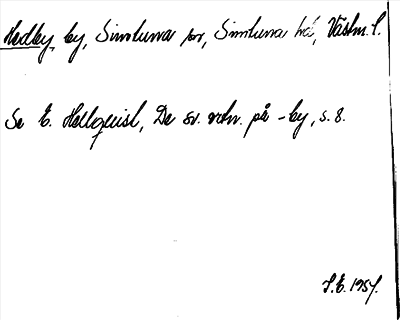 Hedby, by, Simtuna sn, Simtuna hd, Västm. l.
Se E. Hellquist, De sv. ortn. på -by, s. 8.
S.E. 1954.